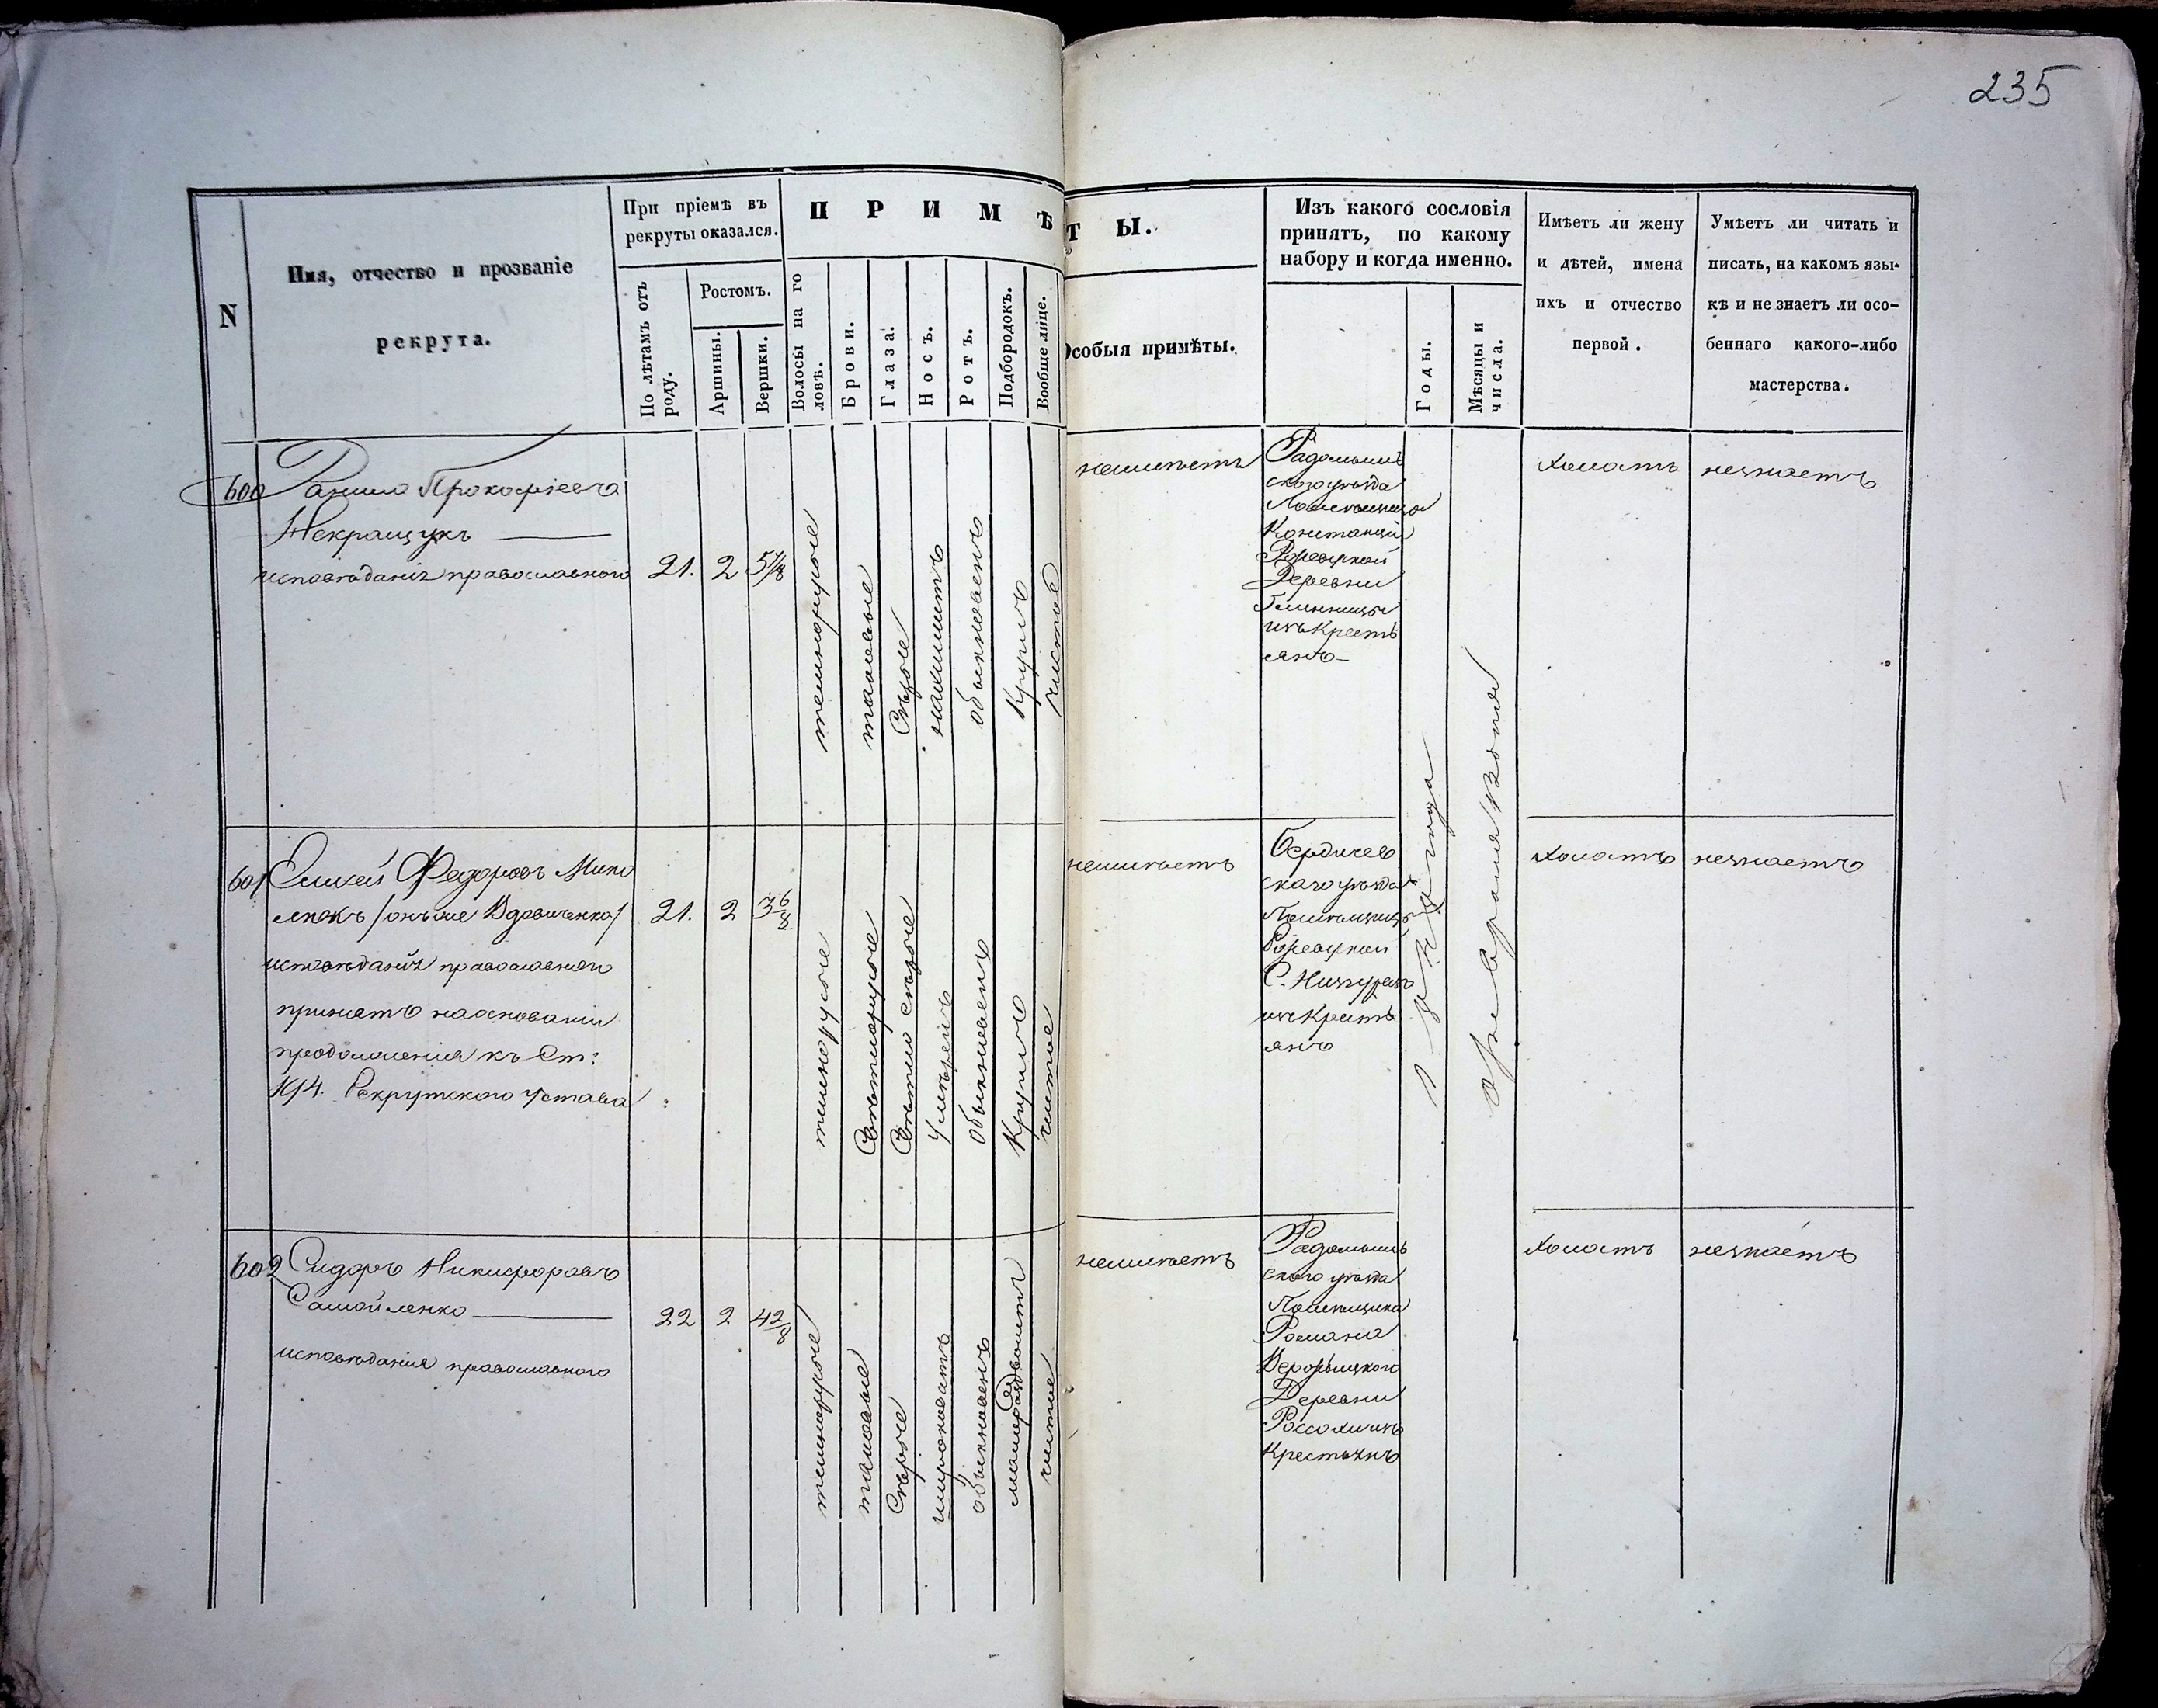 235
N
Имя, отчество и прозваніе
рекрута.
При пріемѣ въ
рекруты оказался.
По лѣтамъ отъ
роду.
Ростомъ.
Аршины.
Вершки.
ПРИМѢТЫ.
Волосы на го
ловѣ.
Брови.
Глаза.
Носъ.
Ротъ.
Подбородокъ.
Вообще лице.
Особыя примѣты.
Изъ какого сословія
принятъ, по какому
набору и когда именно.
Годы.
Мѣсяцы и
числа.
Имѣетъ ли жену
и дѣтей, имена
ихъ и отчество
первой.
Умѣетъ ли читать и
писать, на какомъ язы-
кѣ и не знаетъ ли осо-
беннаго какого-либо
мастерства.
600
Данило Прокофіевъ
Некращукъ
исповѣданія православного
21.
2
5 1/8
темнорусые
таковые
Сѣрые
обыкновенъ
Кругло
чистое
неимѣетъ
Радомыль
ского уѣзда
Деревни
изъ Крестъ
янъ
холостъ
незнаетъ
601
Федоровъ
/онъ же Вдовиченко/
исповѣданія православного
принятъ на основаніи
продолженія къ Ст:
194. Рекрутского Устава
21.
2
3 6/8
темнорусые
Свѣтлорусые
Свѣтло сѣрые
Умѣрен
обыкновенъ
Кругло
чистое
неимѣетъ
Бердичев
скаго уѣзда
изъ Крестъ
янъ
холостъ
незнаетъ
февраля
602
Сидоръ Никифоровъ
Самойленко
исповѣданія православного
22
2
4 2/8
темнорусые
таковые
Сѣрые
широковатъ
обыкновенъ
чистое
неимѣетъ
Радомыль
ского уѣзда
Помѣщика
Романа
Деревни
Крестьянъ
холостъ
незнаетъ